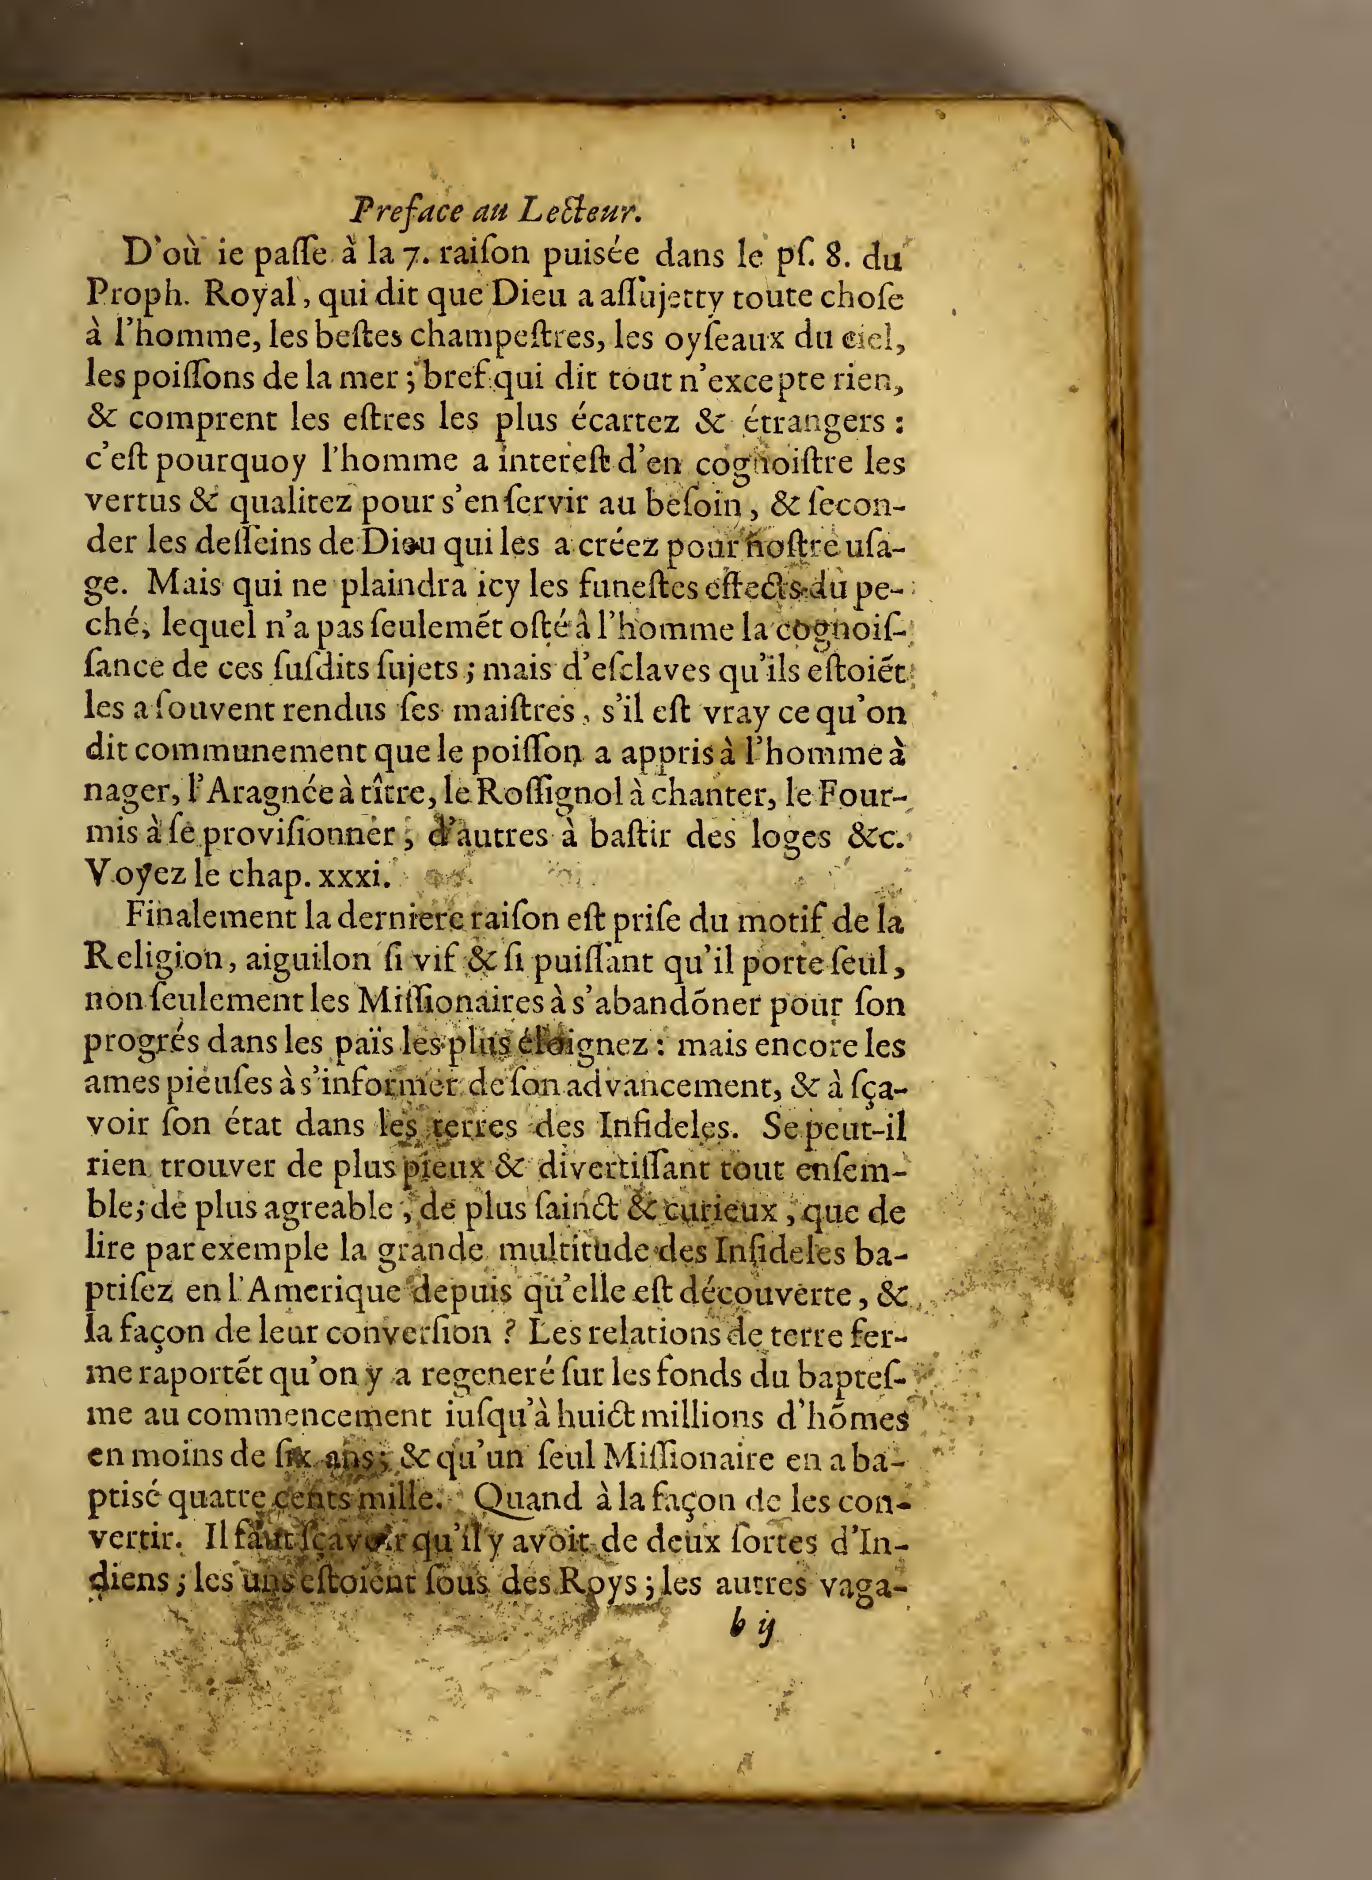 Preface au Lecteur.
D'où ie paſſe à la 7. raiſon puisée dans le pſ. 8. du
Proph. Royal, qui dit que Dieu a aſſujetty toute choſe
à l'homme, les beſtes champeſtres, les oyſeaux du ciel,
les poiſſons de la mer ; bref qui dit tout n'excepte rien,
& comprent les eſtres les plus écartez & étrangers :
c'eſt pourquoy l'homme a intereſt d'en cognoiſtre les
vertus & qualitez pour s'en ſervir au beſoin, & ſecon-
der les deſſeins de Dieu qui les a créez pour noſtre uſa-
ge. Mais qui ne plaindra icy les funeſtes effects du pe-
ché, lequel n'a pas ſeulemét oſté à l'homme la cognoiſ-
ſance de ces ſuſdits ſujets ; mais d'eſclaves qu'ils eſtoiét
les a ſouvent rendus ſes maiſtres, s'il eſt vray ce qu'on
dit communement que le poiſſon a appris à l'homme à
nager, l'Aragnée à tître, le Roſſignol à chanter, le Four-
mis à ſe proviſionner, d'autres à baſtir des loges &c.
Voyez le chap. xxxi.
Finalement la derniere raiſon eſt priſe du motif de la
Religion, aiguilon ſi vif & ſi puiſſant qu'il porte ſeul,
non ſeulement les Miſſionaires à s'abandõner pour ſon
progrés dans les païs les plus éloignez : mais encore les
ames pieuſes à s'informer de ſon advancement, & à ſça-
voir ſon état dans les terres des Infideles. Se peut-il
rien trouver de plus pieux & divertiſſant tout enſem-
ble; de plus agreable, de plus ſainct & curieux, que de
lire par exemple la grande multitude des Infideles ba-
ptiſez en l'Amerique depuis qu'elle eſt découverte, &
la façon de leur converſion ? Les relations de terre fer-
me raportét qu'on y a regeneré ſur les fonds du bapteſ-
me au commencement iuſqu'à huict millions d'hõmes
en moins de ſix ans ; & qu'un ſeul Miſſionaire en a ba-
ptisé quatre cents mille. Quand à la façon de les con-
vertir. Il faut ſçavoir qu'il y avoit de deux ſortes d'In-
diens ; les uns eſtoient ſous des Roys ; les autres vaga-
b ij